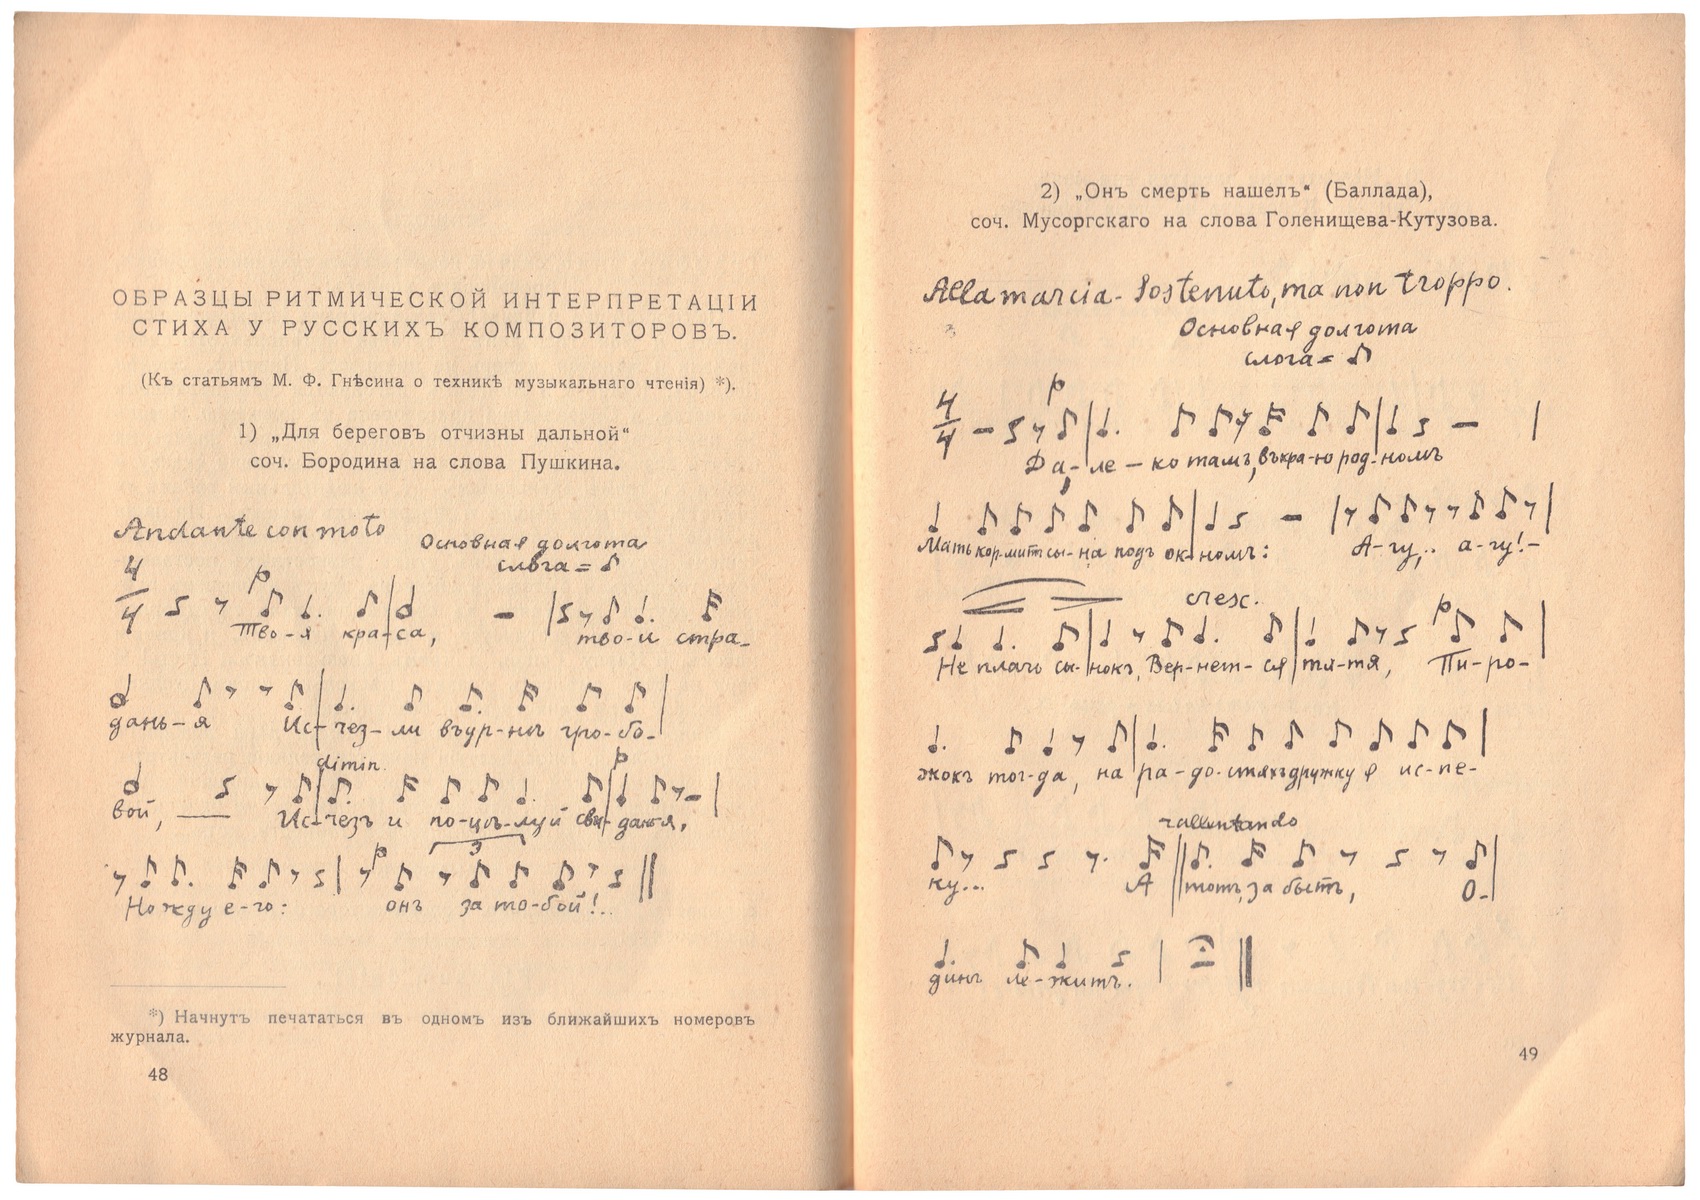 ОБРАЗЦЫ РИТМИЧЕСКОЙ ИНТЕРПРЕТАЦІИ
СТИХА У РУССКИХЪ КОМПОЗИТОРОВЪ.
(Къ статьямъ М. Ф. Гнѣсина о техникѣ музыкальнаго чтенія) *).
1) „Для береговъ отчизны дальной“
соч. Бородина на слова Пушкина.
Andante con moto
Основная долгота
слога = ♪
4/4 p
Тво-я кра-са, тво-и стра-
дань-я Ис-чез-ли въ ур-нѣ гро-бо-
dimin. p
вой, Ис-чезъ и по-цѣ-луй сви-данья,
p 3
Но жду е-го: онъ за то-бой!..
*) Начнутъ печататься въ одномъ изъ ближайшихъ номеровъ
журнала.
48
2) „Онъ смерть нашелъ“ (Баллада),
соч. Мусоргскаго на слова Голенищева-Кутузова.
Alla marcia - Sostenuto, ma non troppo.
Основная долгота
слога = ♪
4/4 p
Да-ле-ко тамъ, въ кра-ю род-номъ
Мать кор-митъ сы-на подъ ок-номъ: А-гу,.. а-гу!-
cresc. p
Не плачь сы-нокъ, Вер-нет-ся тя-тя, Пи-ро-
жокъ тог-да, на ра-до-стяхъ дружку я ис-пе-
rallentando
ку... А тотъ, за быть, О-
динъ ле-житъ.
49